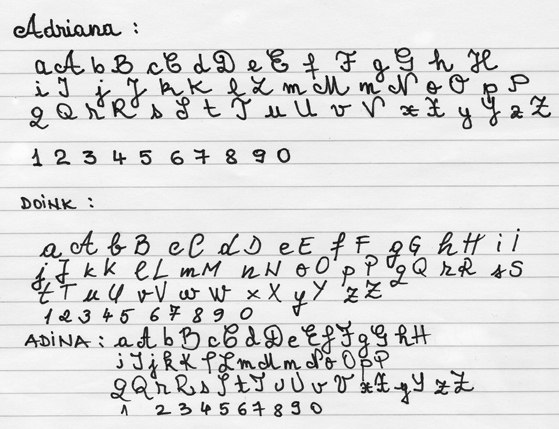 Adriana :
a A b B c C d D e E f F g G h H
i I j J k K l L m M n N o O p P
q Q r R s S t T u U v V x X y Y z Z
1 2 3 4 5 6 7 8 9 0
DOINK :
a A b B c C d D e E f F g G h H i I
j J k K l L m M n N o O p P q Q r R s S
t T u U v V w W x X y Y z Z
1 2 3 4 5 6 7 8 9 0
ADINA : a A b B c C d D e E f F g G h H
i I j k K l L m M n N o O p P
q Q r R s S t T u U v V x X y Y z Z
1 2 3 4 5 6 7 8 9 0